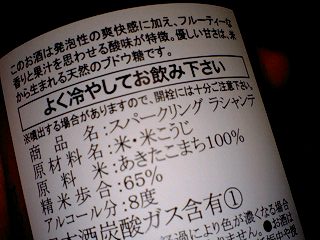 このお酒は発泡性の爽快感に加え、フルーティーな
香りと果汁を思わせる酸味が特徴。優しい甘さは、米
から生まれる天然のブドウ糖です。
よく冷やしてお飲み下さい
※噴出する場合がありますので、開栓には十分ご注意下さい。
商品名:スパークリング ラシャンテ
原材料名:米・米こうじ
原料米:あきたこまち100%
精米歩合:65%
アルコール分:8度
日本酒炭酸ガス含有①
過により色が濃くなる場合
●お酒は